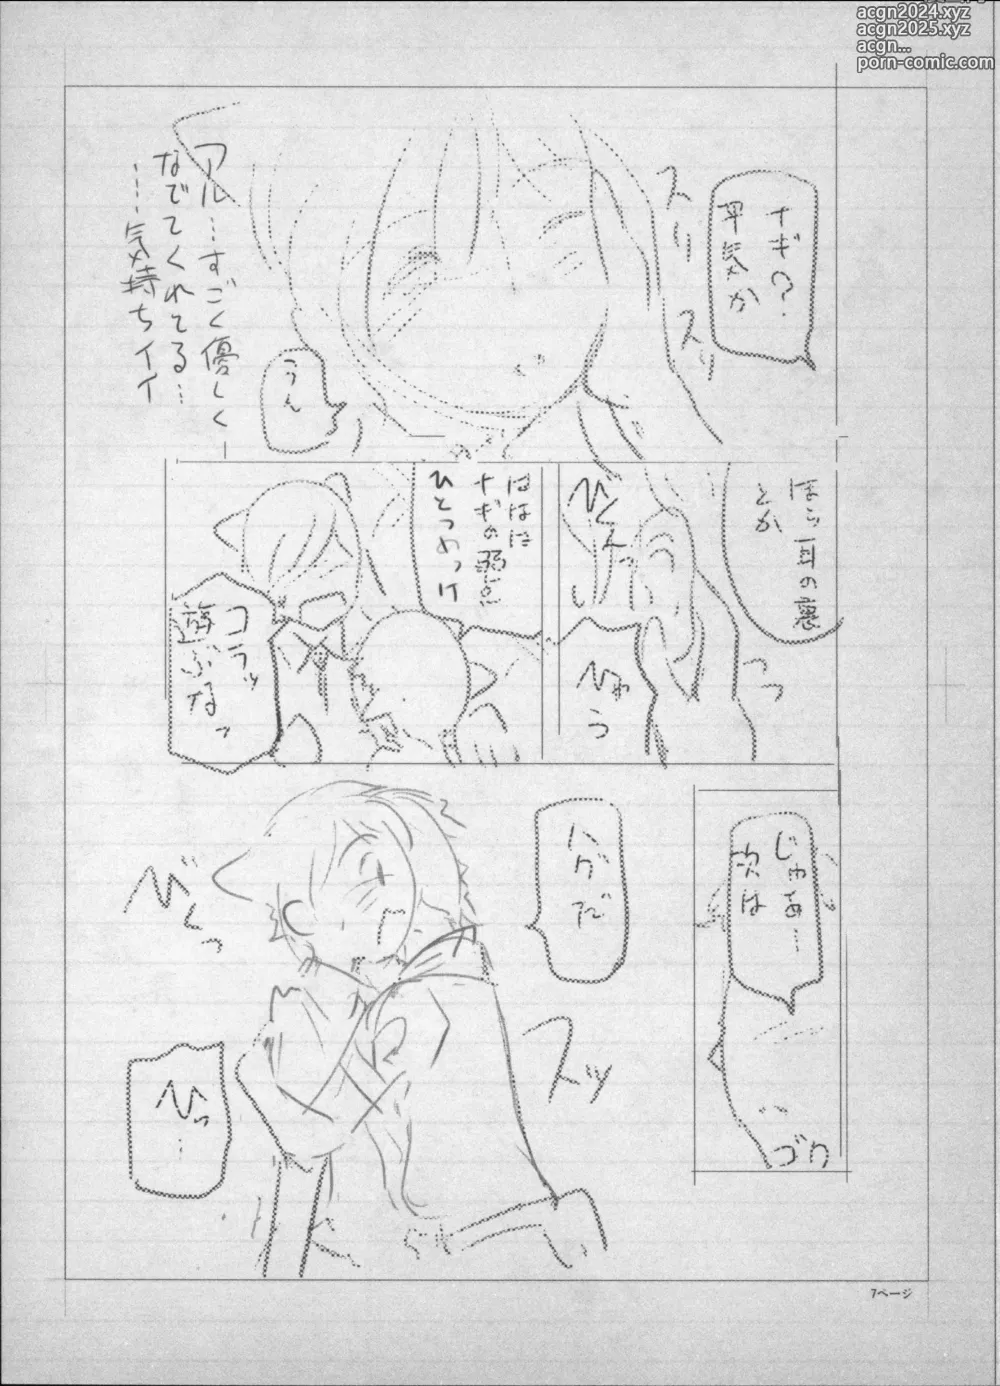 acgn2024.xyz
acgn2025.xyz
acgn...
porn-comic.com
ナギ?
平気か
スリ
スリ
アル…すごく優しく
なでてくれてる…
……気持ちイイ
うん
ほら耳の裏
とか
びくんっ
ひゃう
ははは
ナギの弱点
ひとつめっけ
コラッ
遊ぶなっ
じゃあ…
次は
ゴク
ハグだ
スッ
びくっ
ひっ…
7ページ